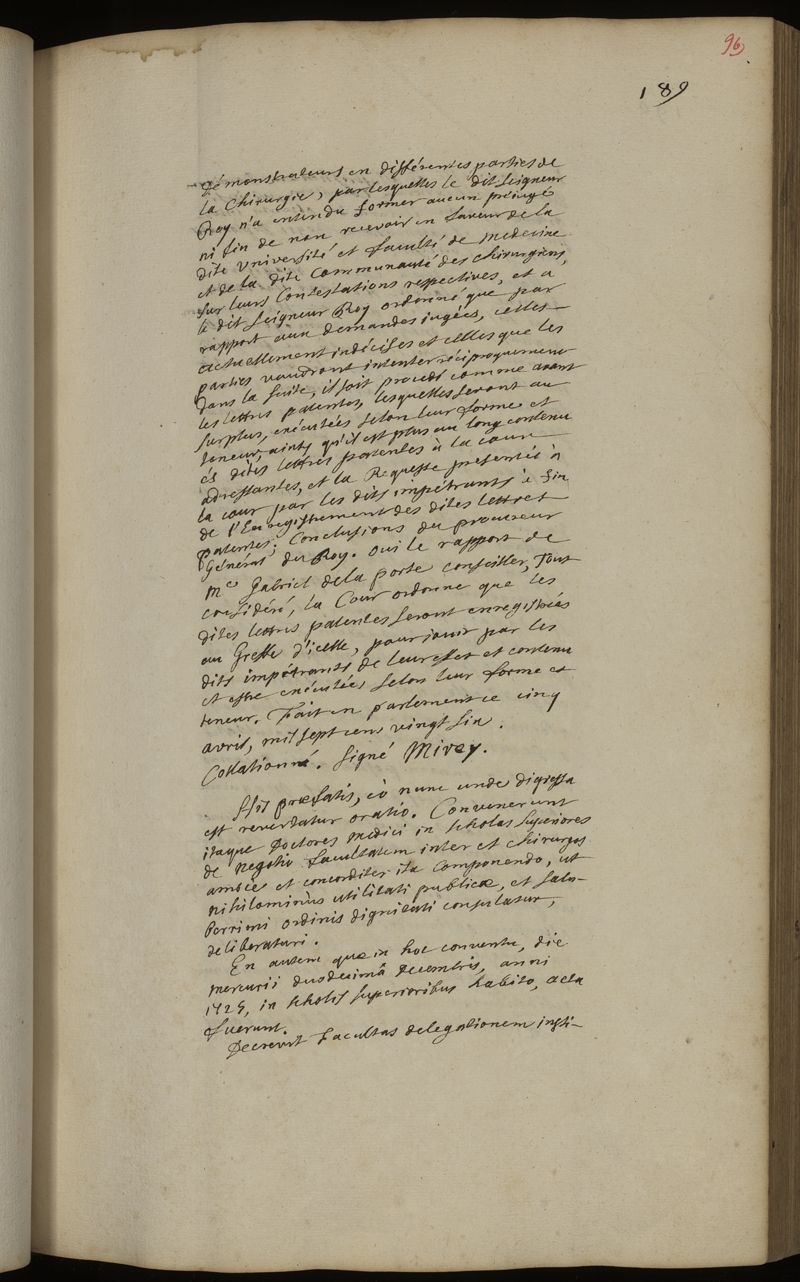 96
189
démonstrateurs en différentes parties de
la Chirurgie, par lesquelles le dit Seigneur
Roy n'a entendu former aucun préjugé
ni fin de non recevoir en faveur de la
dite Université et faculté de Medecine
et de la dite Communauté des chirurgiens,
sur leurs Contestations respectives, et a
le dit Seigneur Roy ordonné que par
rapport aux demandes jugées, celles
actuellement indécises et celles que les
parties voudront intenter réciproquement
dans la suite, il soit procedé comme avant
les lettres patentes, lesquelles seront au
surplus, exécutées selon leur forme et
teneur, ainsy qu'il est plus au long contenu
és dites lettres patentes à la cour
adressantes, et la Requeste presentée à
la cour par les dits impétrants à fin
de l'Enregistrement des dites lettres
patentes; Conclusions du procureur
Général du Roy. Oui le rapport de
Me Gabriel de la porte conseiller, Tout
considéré, la Cour ordonne que les
dites lettres patentes seront enregistrées
au Greffe d'icelle, pour jouir par les
dits impétrants de leur effet et contenu
et estre exécutées selon leur forme et
teneur. Fait en parlement ce cinq
avril, mil sept cens vingt six.
Collationné. Signé Mirey.
His praefatis, eò nunc unde digressa
est revertatur oratio. Convenerunt
itaque Doctores medici in scholas superiores
de negotio facultatem inter et chirurgos
amicè et concorditer ita componendo, ut
nihilominùs utilitati publicae, et salu-
berrimi ordinis dignitati consulatur,
deliberaturi.
En autem quae in hoc conventu, die
mercurii duodecimâ Decembris, anni
1725, in scholis superioribus habito, acta
fuerunt.
Decrevit Facultas delegationem insti-